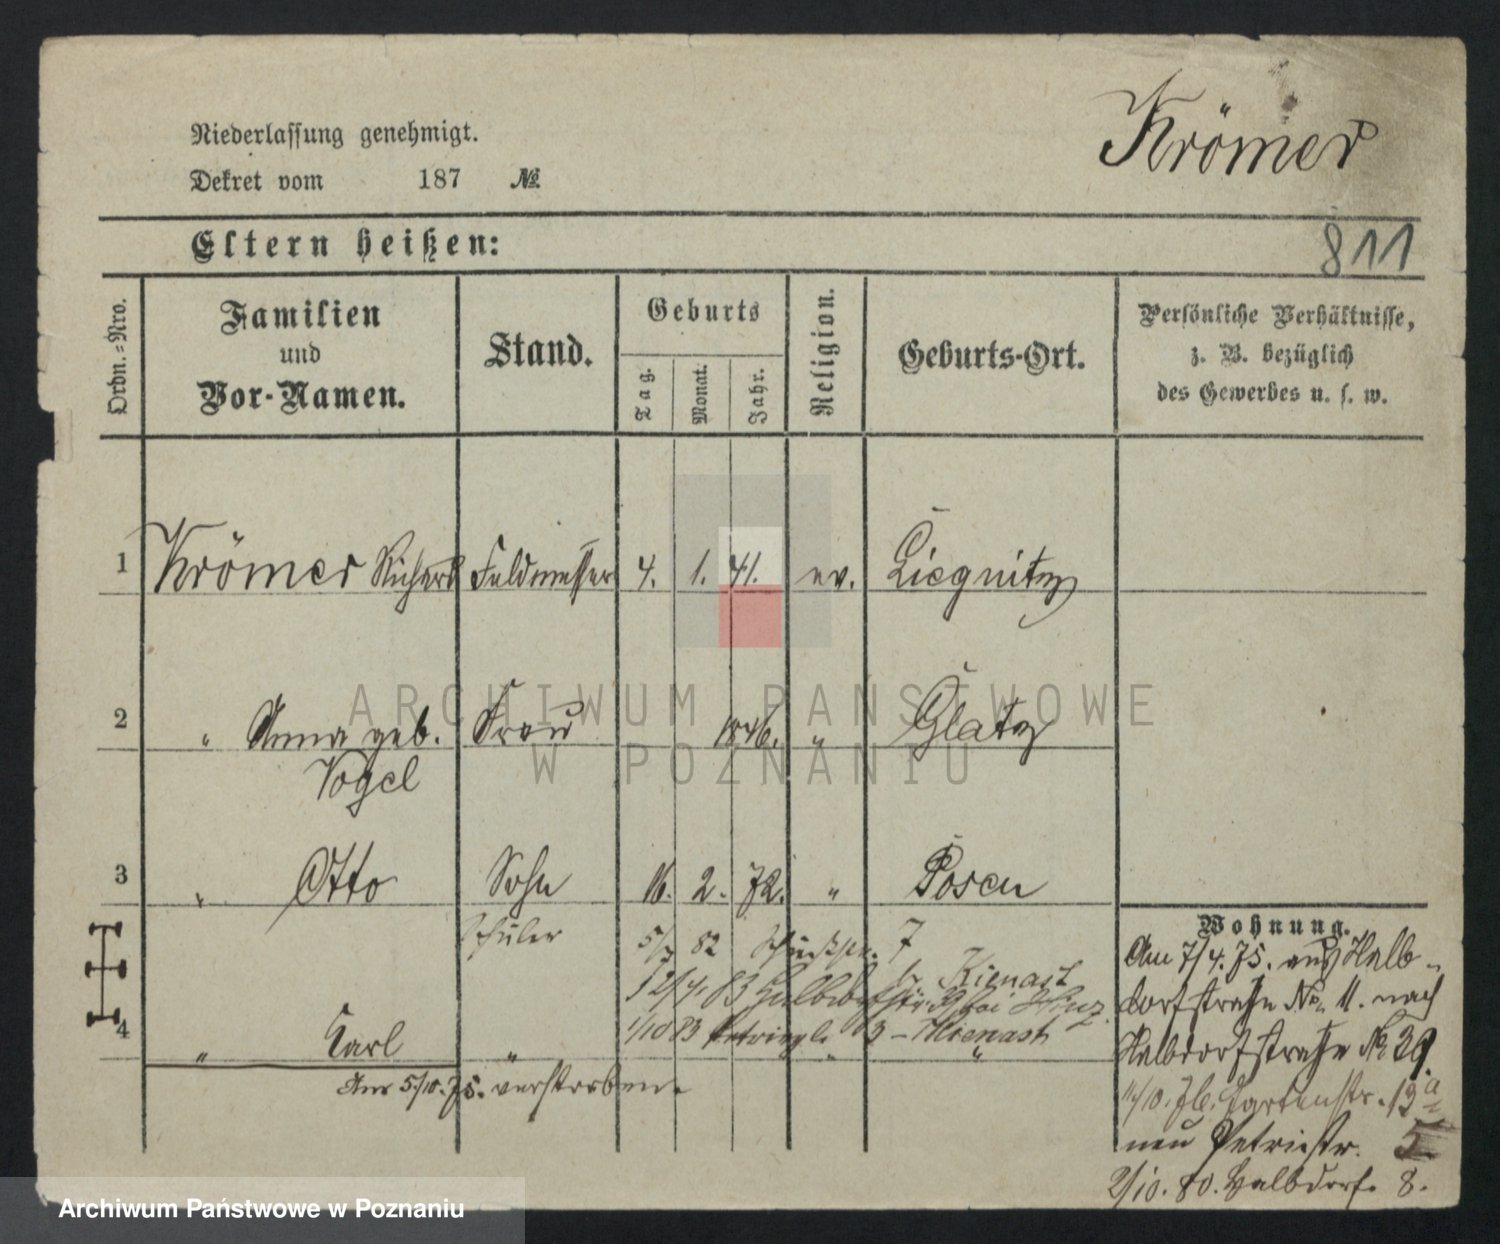 Krömer
Niederlassung genehmigt.
Dekret vom 187 №
Eltern heißen:
811
Ordn.=Nro.
Familien
und
Vor-Namen.
Stand.
Geburts
Tag.
Monat.
Jahr.
Religion.
Geburts-Ort.
Persönliche Verhältnisse,
z. B. bezüglich
des Gewerbes u. s. w.
1 Krömer Richard Feldmesser 4. 1. 41. ev. Liegnitz
2 " Anna geb. Frau 1846. " Glatz
Vogel
3 " Otto Sohn 16. 2. 72. " Posen
Schüler 5/7 82
12/4. 83 Halbdorfstr. 39 bei
1/10 83
4 " Karl " " "
Am 5/10. 75. verstorben.
Wohnung.
Am 7/4. 75. aus Halb-
dorfstraße No. 11. nach
Halbdorfstraße No 39.
11/10. 76. Gartenstr. 13a
neu Petristr. 5.
2/10. 80. Halbdorf. 8.
ARCHIWUM PAŃSTWOWE
W POZNANIU
Archiwum Państwowe w Poznaniu